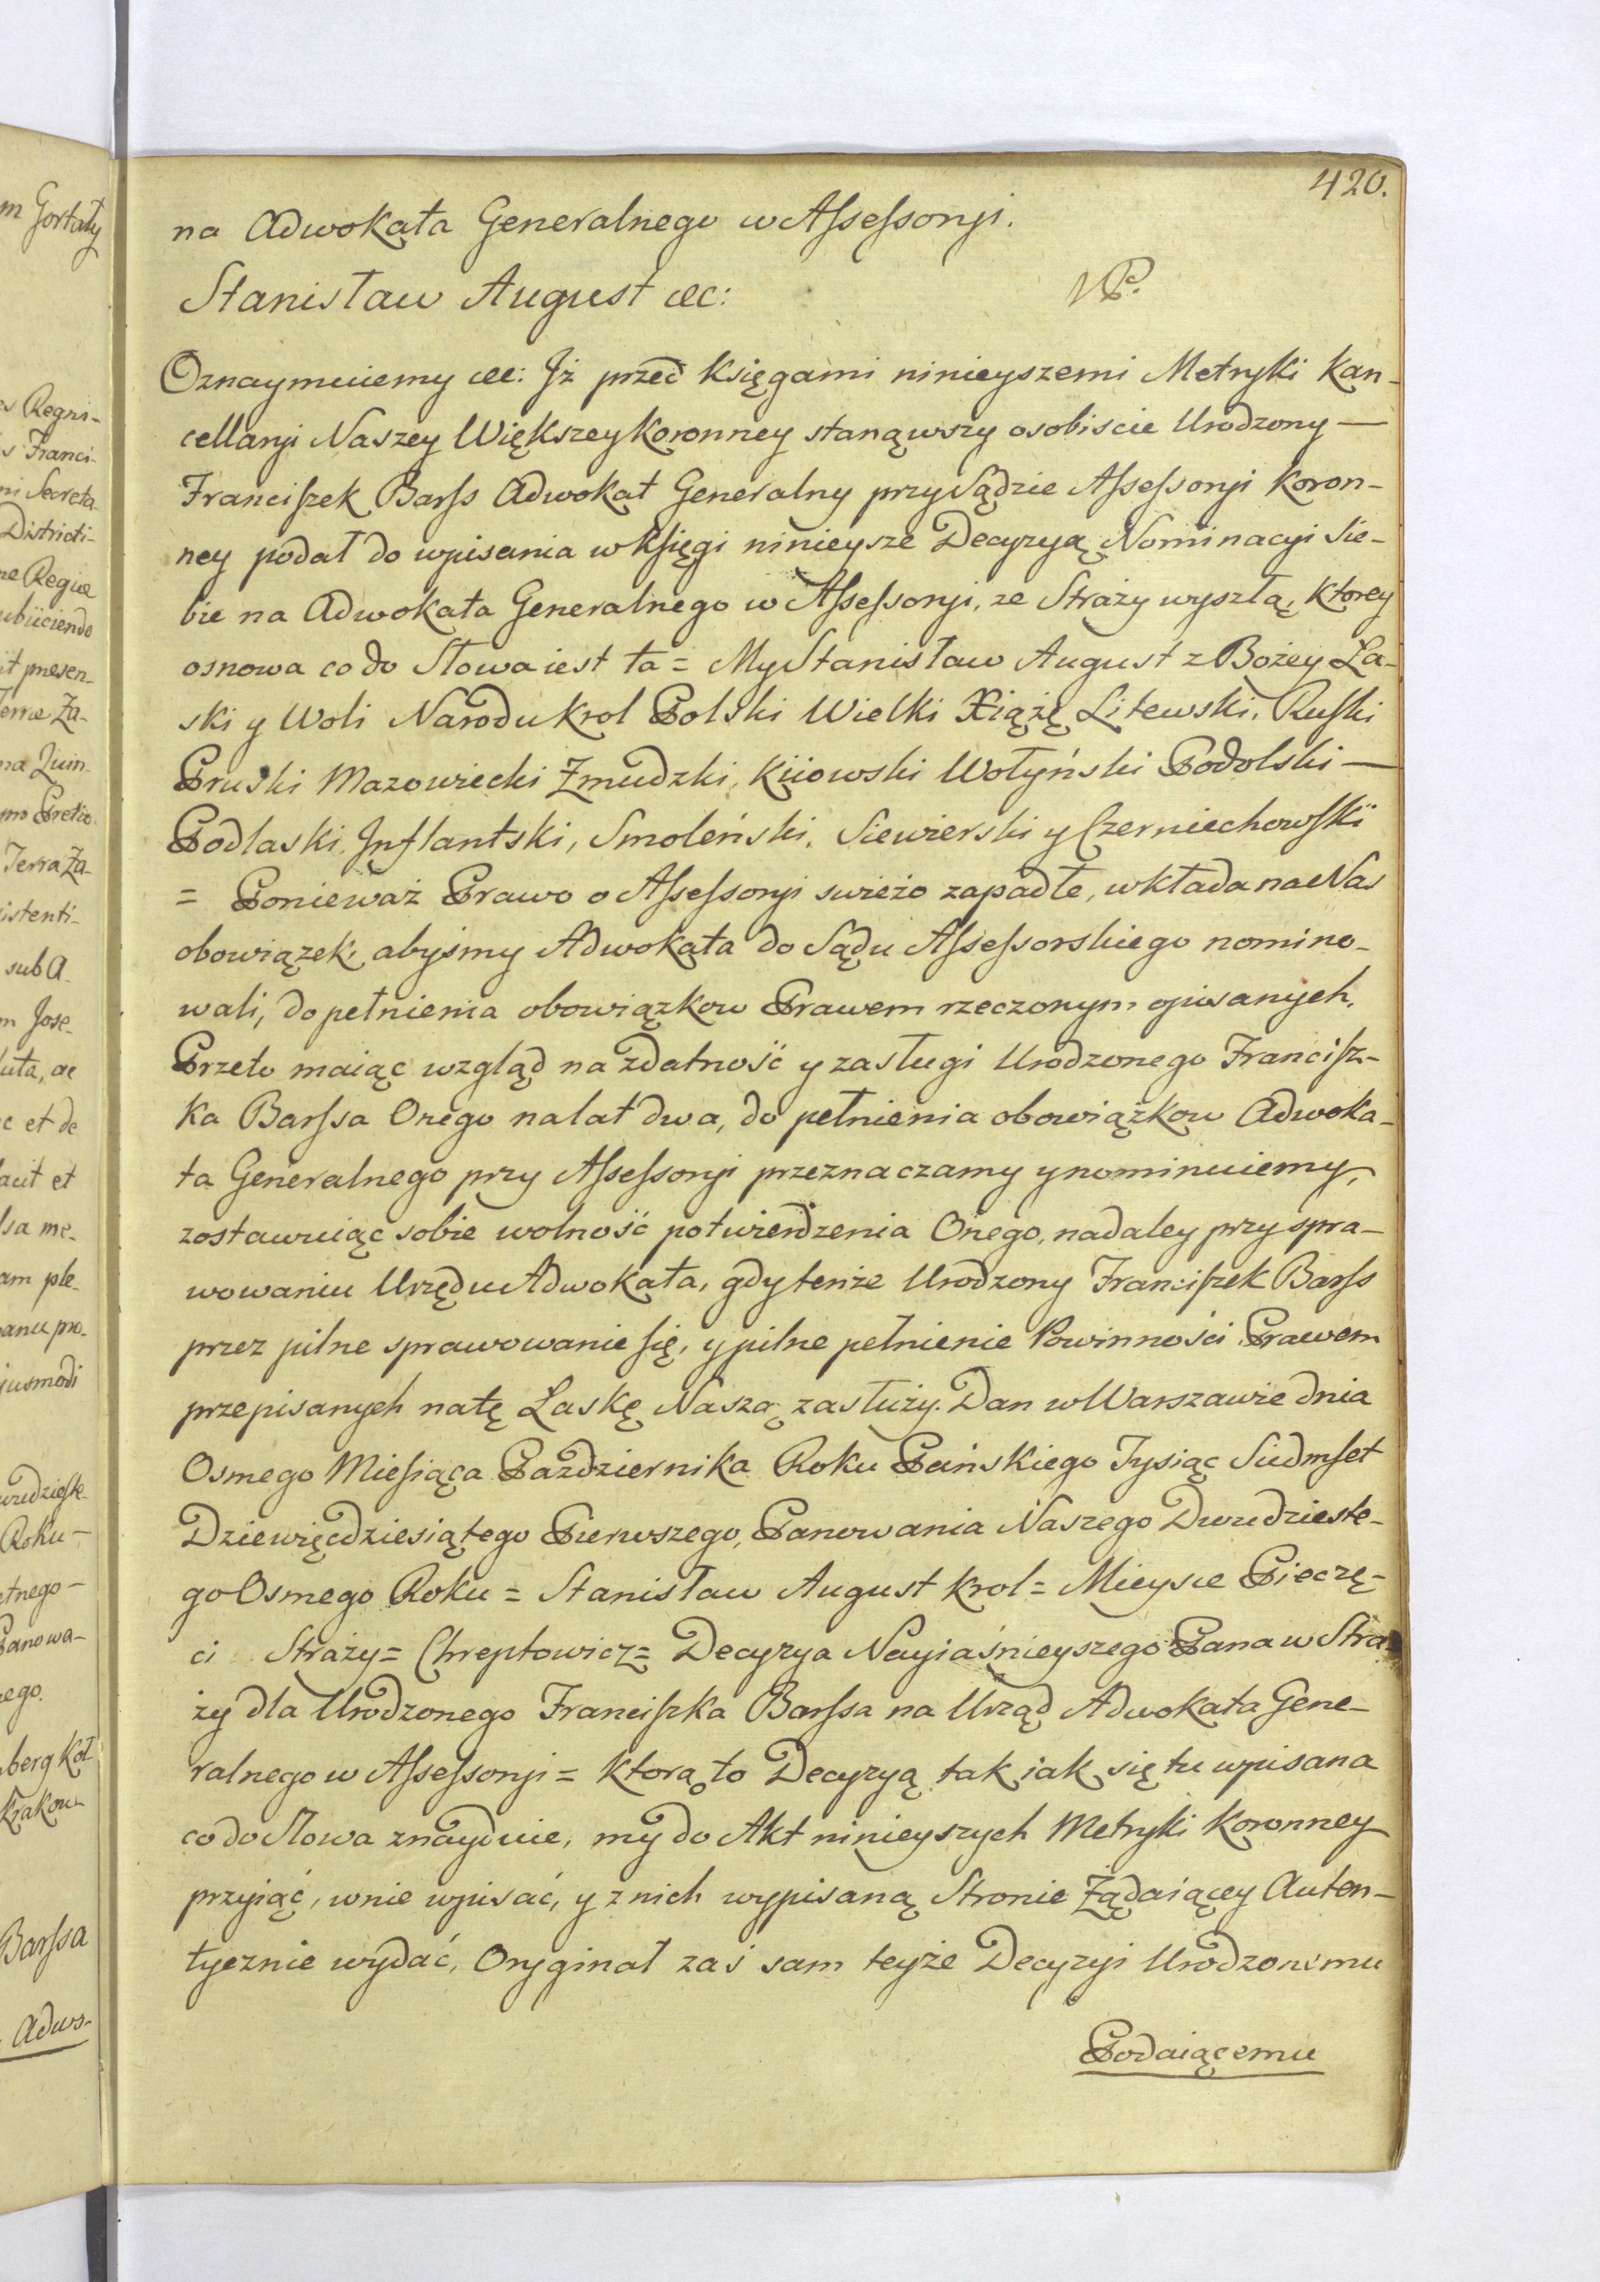 420.
na Adwokata Generalnego w Assessoryi.
Stanisław August etc: NP.
Oznaymuiemy etc: Iż przed Księgami ninieyszemi Metryki Kan-
cellaryi Naszey Większey Koronney stanąwszy osobiscie Urodzony —
Franciszek Barss Adwokat Generalny przy Sądzie Assessoryi Koron-
ney podał do wpisania w Księgi ninieysze Decyzyą Nominacyi sie-
bie na Adwokata Generalnego w Assessoryi, ze Straży wyszłą, ktorey
osnowa co do Słowa iest ta = My Stanisław August z Bożey Ła-
ski y Woli Narodu Krol Polski Wielki Xiążę Litewski, Ruski
Pruski Mazowiecki Zmudzki, Kiiowski Wołyński Podolski —
Podlaski, Inflantski, Smoleński, Siewierski y Czerniechowski
= Ponieważ Prawo o Assessoryi swieżo zapadłe, wkłada na Nas
obowiązek, abyśmy Adwokata do Sądu Assessorskiego nomino-
wali, do pełnienia obowiązkow Prawem rzeczonym opisanych,
Przeto maiąc wzgląd na zdatność y zasługi Urodzonego Francisz-
ka Barssa Onego na lat dwa, do pełnienia obowiązkow Adwoka-
ta Generalnego przy Assessoryi przeznaczamy y nominuiemy,
zostawuiąc sobie wolność potwierdzenia Onego, nadaley przy spra-
wowaniu Urzędu Adwokata, gdy tenże Urodzony Franciszek Barss
przez pilne sprawowanie się, y pilne pełnienie Powinności Prawem
przepisanych na tę Łaskę Naszą zasłuży. Dan w Warszawie dnia
Osmego Miesiąca Pazdziernika Roku Pańskiego Tysiąc Siedmset
Dziewięćdziesiątego Pierwszego, Panowania Naszego Dwudzieste-
go Osmego Roku = Stanisław August Krol = Mieysce Pieczę-
ci Straży = Chreptowicz = Decyzya Nayiaśnieyszego Pana w Stra-
ży dla Urodzonego Franciszka Barssa na Urząd Adwokata Gene-
ralnego w Assessoryi = Ktorą to Decyzyą tak iak się tu wpisana
co do Słowa znayduie, my do Akt ninieyszych Metryki Koronney
przyiąć, w nie wpisać, y z nich wypisaną Stronie Żądaiącey Auten-
tycznie wydać, Oryginał zaś sam teyże Decyzyi Urodzonemu
Podaiącemu